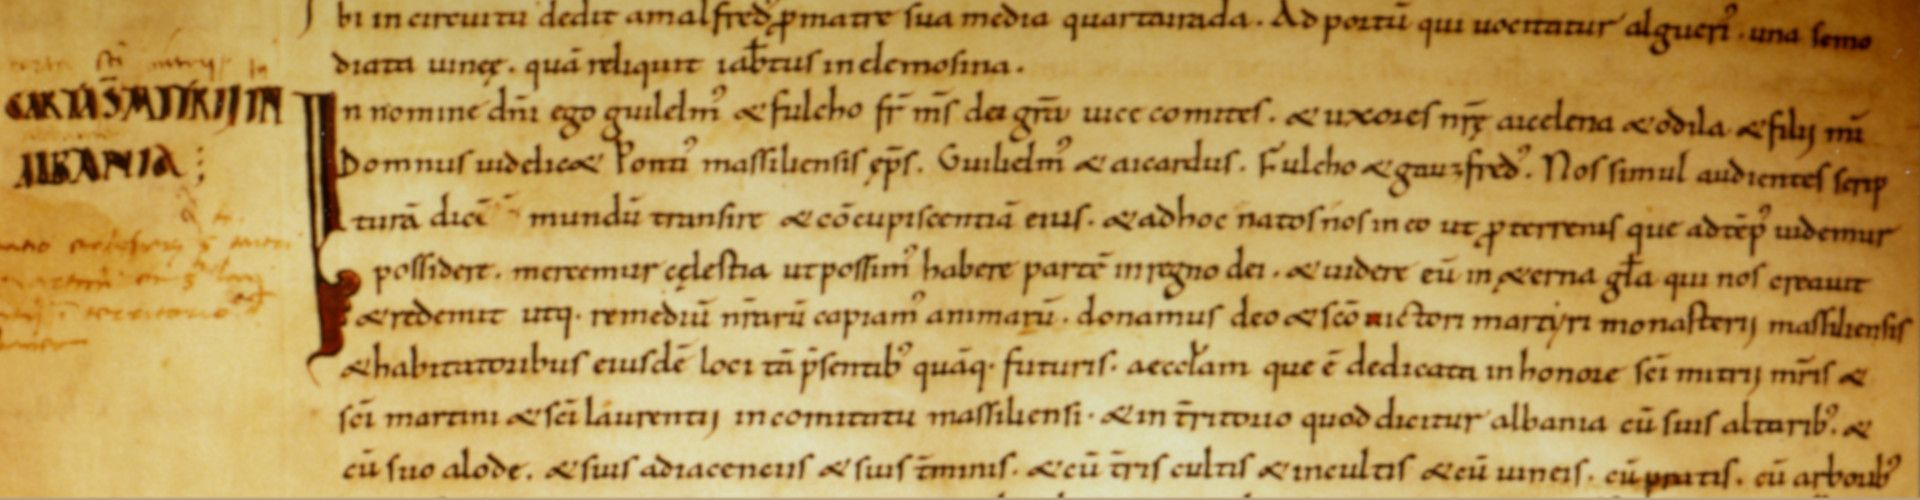 bi in circuitu dedit amalfred ꝑ matre sua media quartairada. Ad portū qui uocitatur alguerꝰ. una semo
diata uineę. quā reliquit iaƀtus in elemosina.
CARTA S̄ MITRII IN
ALBANIA;
In nomine dn̄i ego guilelmꝰ & fulcho fr̄ m̄s dei gr̄a uice comites. & uxores nr̄ę aicelena & odila & filij mi
Domnus uidelic& Pontiꝰ massiliensis ep̄s. Guilielmꝰ & aicardus. Fulcho & gauzfredꝰ. Nos simul audientes scrip
turā dicē mundū transire & cōcupiscentiā eius. & ad hoc natos nos in eo ut ꝑ terrenis que ad tēpꝰ uidemur
possidere. mereamur cęlestia ut possimꝰ habere partē in regno dei. & uidere eū in &erna gła qui nos creauit
& redemit utiq. remediū nr̄arū capiamꝰ animarū. donamus deo & sc̄o uictori martyri monasterij massiliensis
& habitatoribus eiusdē loci tā p̄sentibꝰ quāq. futuris. aeccłam que ē dedicata in honore sc̄i mitrij mr̄is &
sc̄i martini & sc̄i laurentij in comitatu massiliensi. & in t̄ritorio quod dicitur albania cū suis altaribꝰ. &
cū suo alode. & suis adiacenciis & suis t̄minis. & cū t̄ris cultis & incultis & cū uineis. cū pratis. cū arboribꝰ